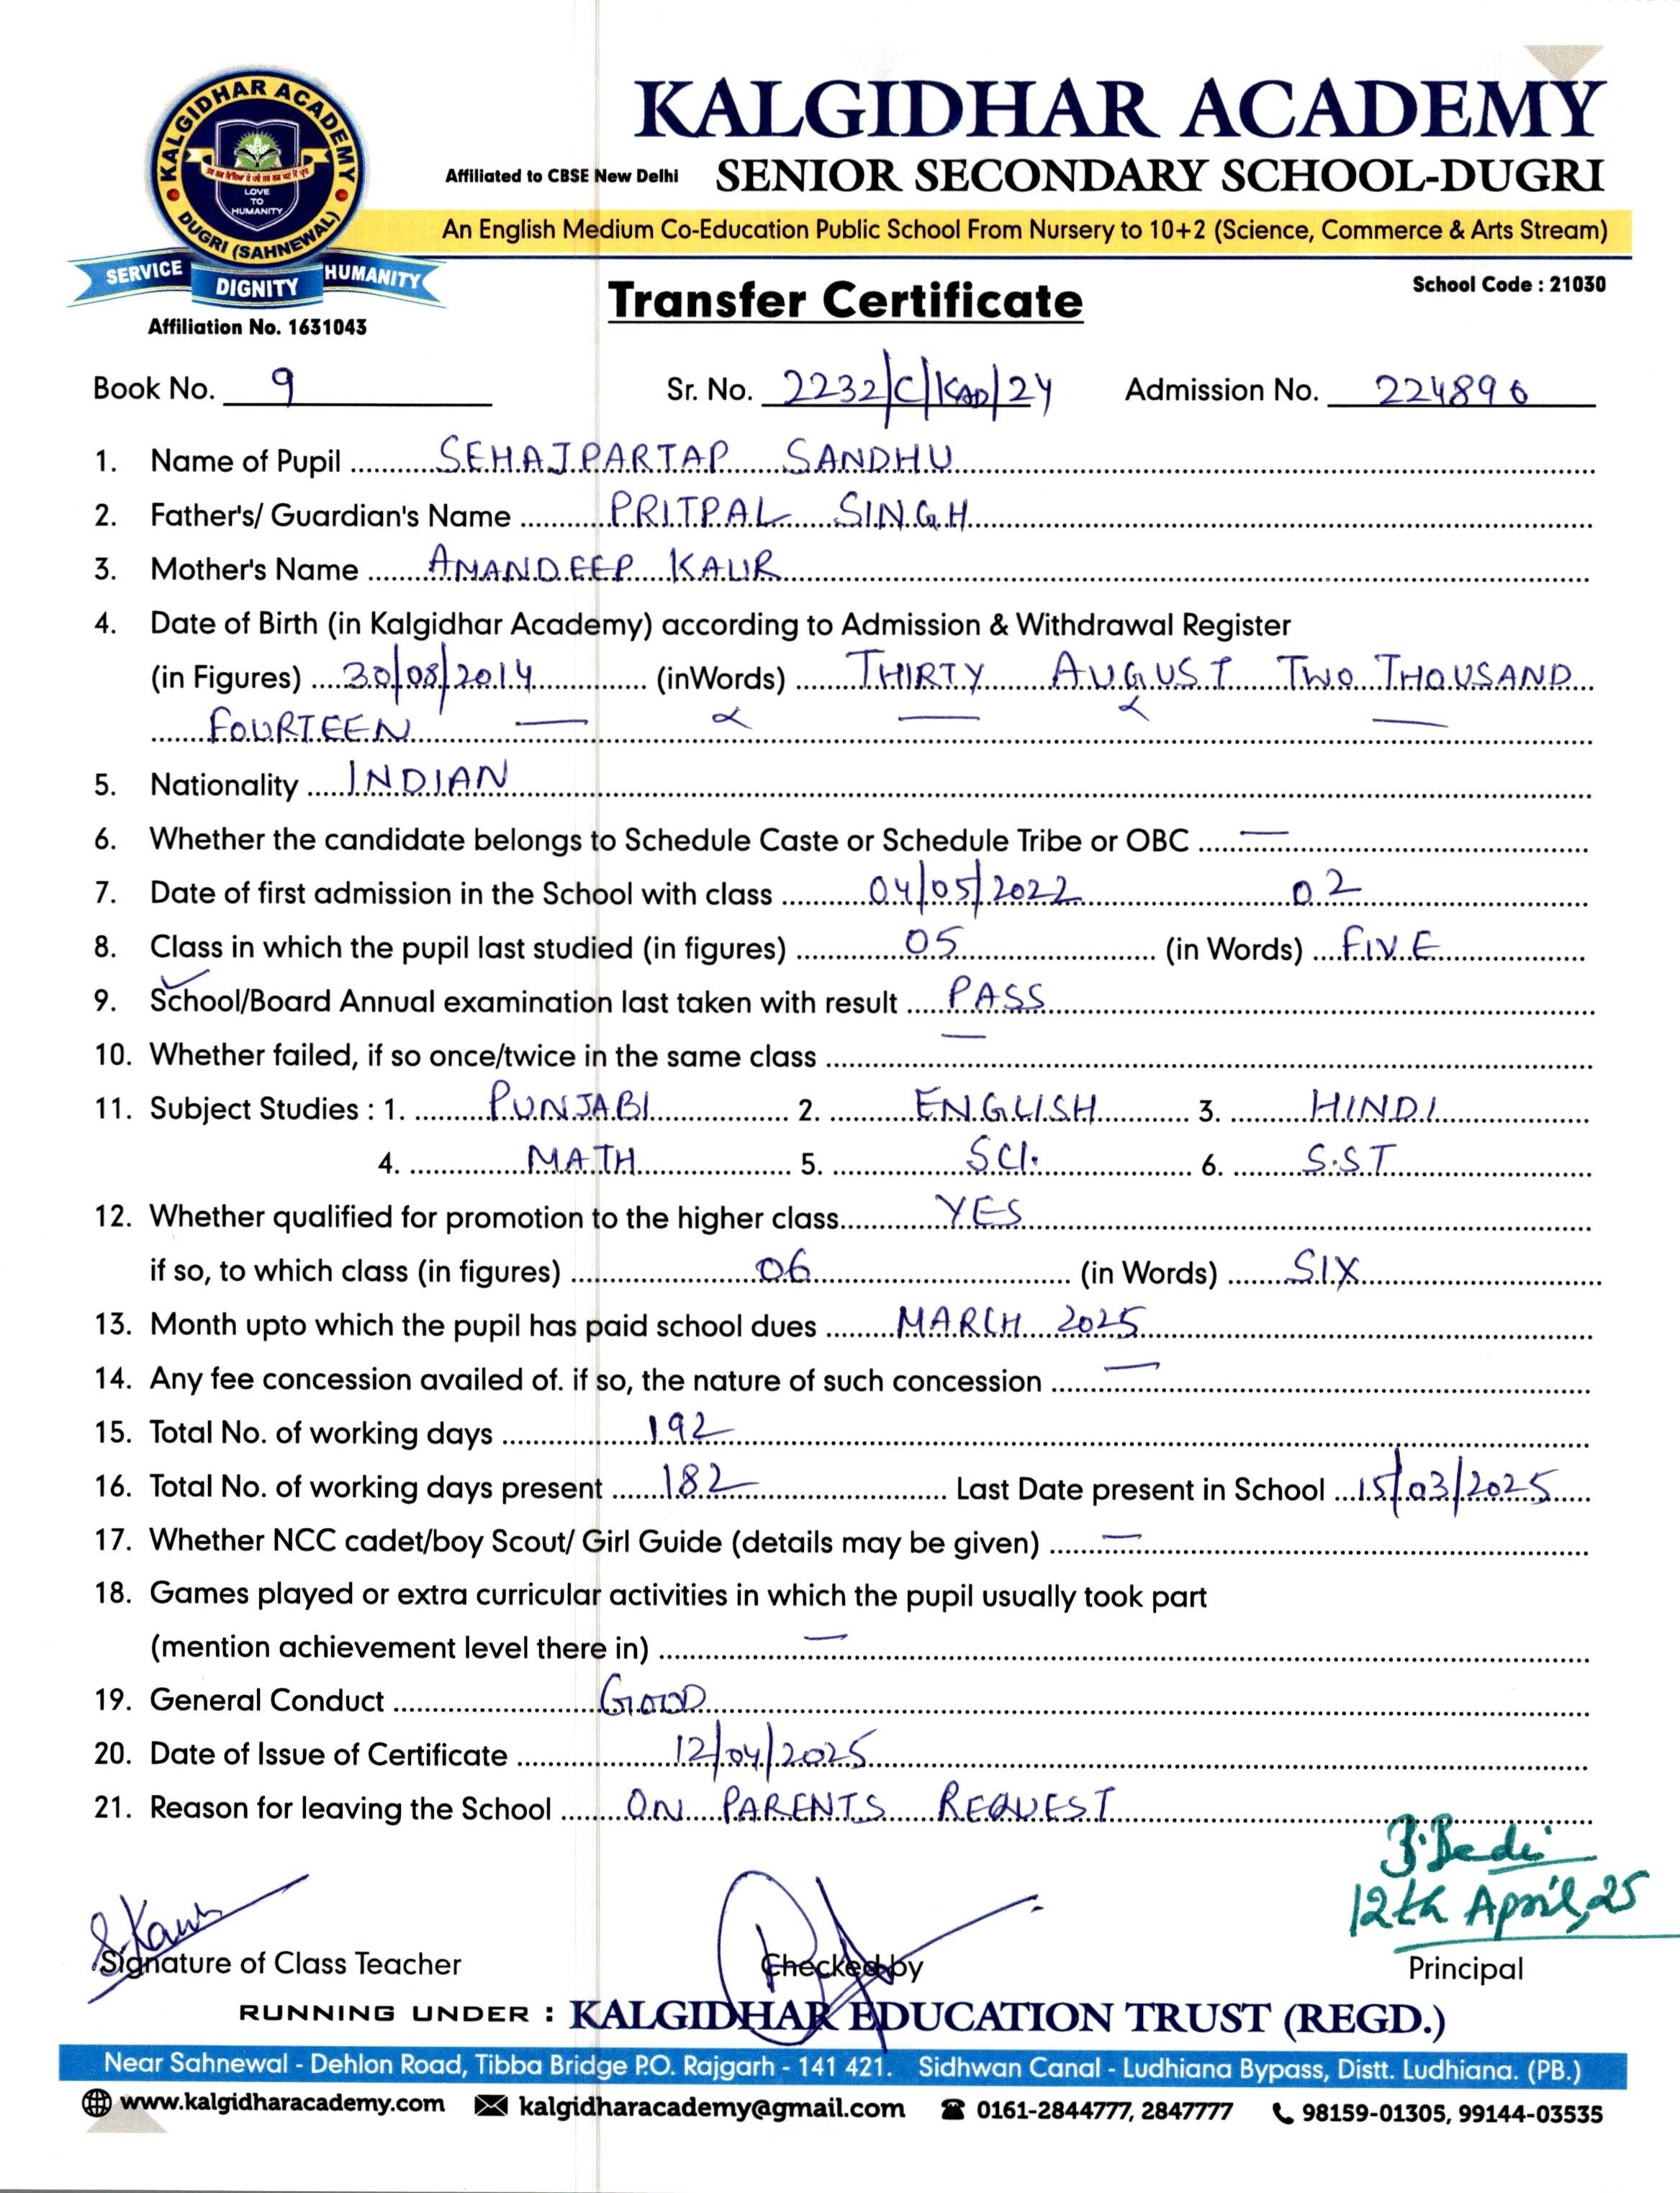 KALGIDHAR ACADEMY
DUGRI (SAHNEWAL)
LOVE
TO
HUMANITY
SERVICE
DIGNITY
HUMANITY
Affiliation No. 1631043
KALGIDHAR ACADEMY
Affiliated to CBSE New Delhi SENIOR SECONDARY SCHOOL-DUGRI
An English Medium Co-Education Public School From Nursery to 10+2 (Science, Commerce & Arts Stream)
School Code : 21030
Transfer Certificate
Book No. 9 Sr. No. 2232/C/KAD/24 Admission No. 224896
1. Name of Pupil SEHAJPARTAP SANDHU
2. Father's/ Guardian's Name PRITPAL SINGH
3. Mother's Name AMANDEEP KAUR
4. Date of Birth (in Kalgidhar Academy) according to Admission & Withdrawal Register
(in Figures) 30/08/2014 (inWords) THIRTY AUGUST TWO THOUSAND
FOURTEEN
5. Nationality INDIAN
6. Whether the candidate belongs to Schedule Caste or Schedule Tribe or OBC —
7. Date of first admission in the School with class 04/05/2022 02
8. Class in which the pupil last studied (in figures) 05 (in Words) FIVE
9. School/Board Annual examination last taken with result PASS
10. Whether failed, if so once/twice in the same class —
11. Subject Studies : 1. PUNJABI 2. ENGLISH 3. HINDI
4. MATH 5. SCI. 6. S.ST
12. Whether qualified for promotion to the higher class YES
if so, to which class (in figures) 06 (in Words) SIX
13. Month upto which the pupil has paid school dues MARCH 2025
14. Any fee concession availed of. if so, the nature of such concession —
15. Total No. of working days 192
16. Total No. of working days present 182 Last Date present in School 15/03/2025
17. Whether NCC cadet/boy Scout/ Girl Guide (details may be given) —
18. Games played or extra curricular activities in which the pupil usually took part
(mention achievement level there in) —
19. General Conduct GOOD
20. Date of Issue of Certificate 12/04/2025
21. Reason for leaving the School ON PARENTS REQUEST
S.Kaur
B.Bedi
12th April, 25
Signature of Class Teacher Checked by Principal
RUNNING UNDER : KALGIDHAR EDUCATION TRUST (REGD.)
Near Sahnewal - Dehlon Road, Tibba Bridge P.O. Rajgarh - 141 421. Sidhwan Canal - Ludhiana Bypass, Distt. Ludhiana. (PB.)
www.kalgidharacademy.com kalgidharacademy@gmail.com 0161-2844777, 2847777 98159-01305, 99144-03535